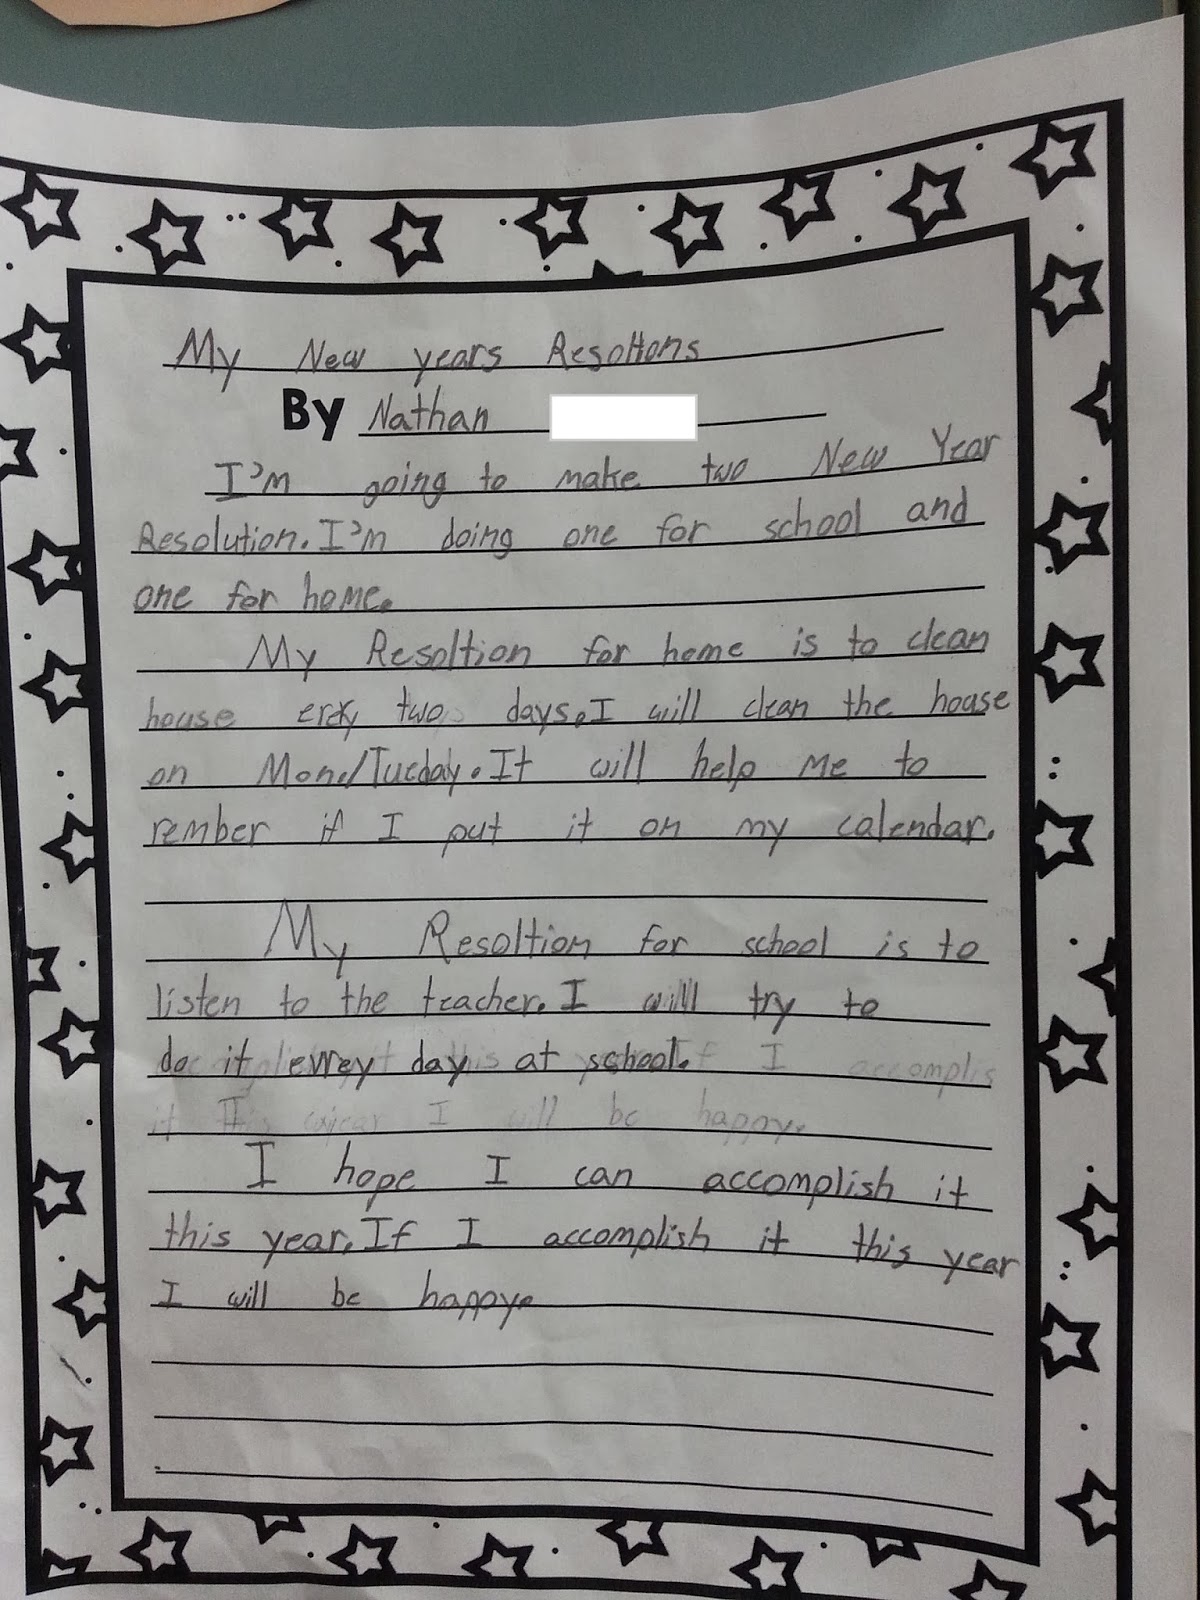 My New years Resoltons
By Nathan
I'm going to make two New Year
Resolution. I'm doing one for school and
one for home.
My Resoltion for home is to clean
house two days. I will clean the house
on Mond/Tuesday. It will help me to
rember if I put it on my calendar.
My Resoltion for school is to
listen to the teacher. I will try to
do it evrey day at school.
I hope I can accomplish it
this year. If I accomplish it this year
I will be happy.